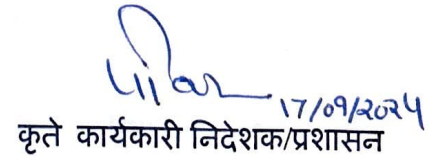 17/09/2024
कृते कार्यकारी निदेशक/प्रशासन